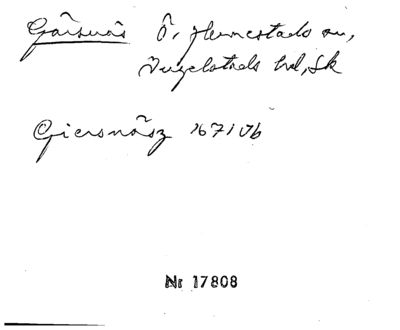 Gärsnäs Ö. Hermestads sn,
Ingelstads hd, Sk
Giersnäsz 1671 Jb
Nr 17808